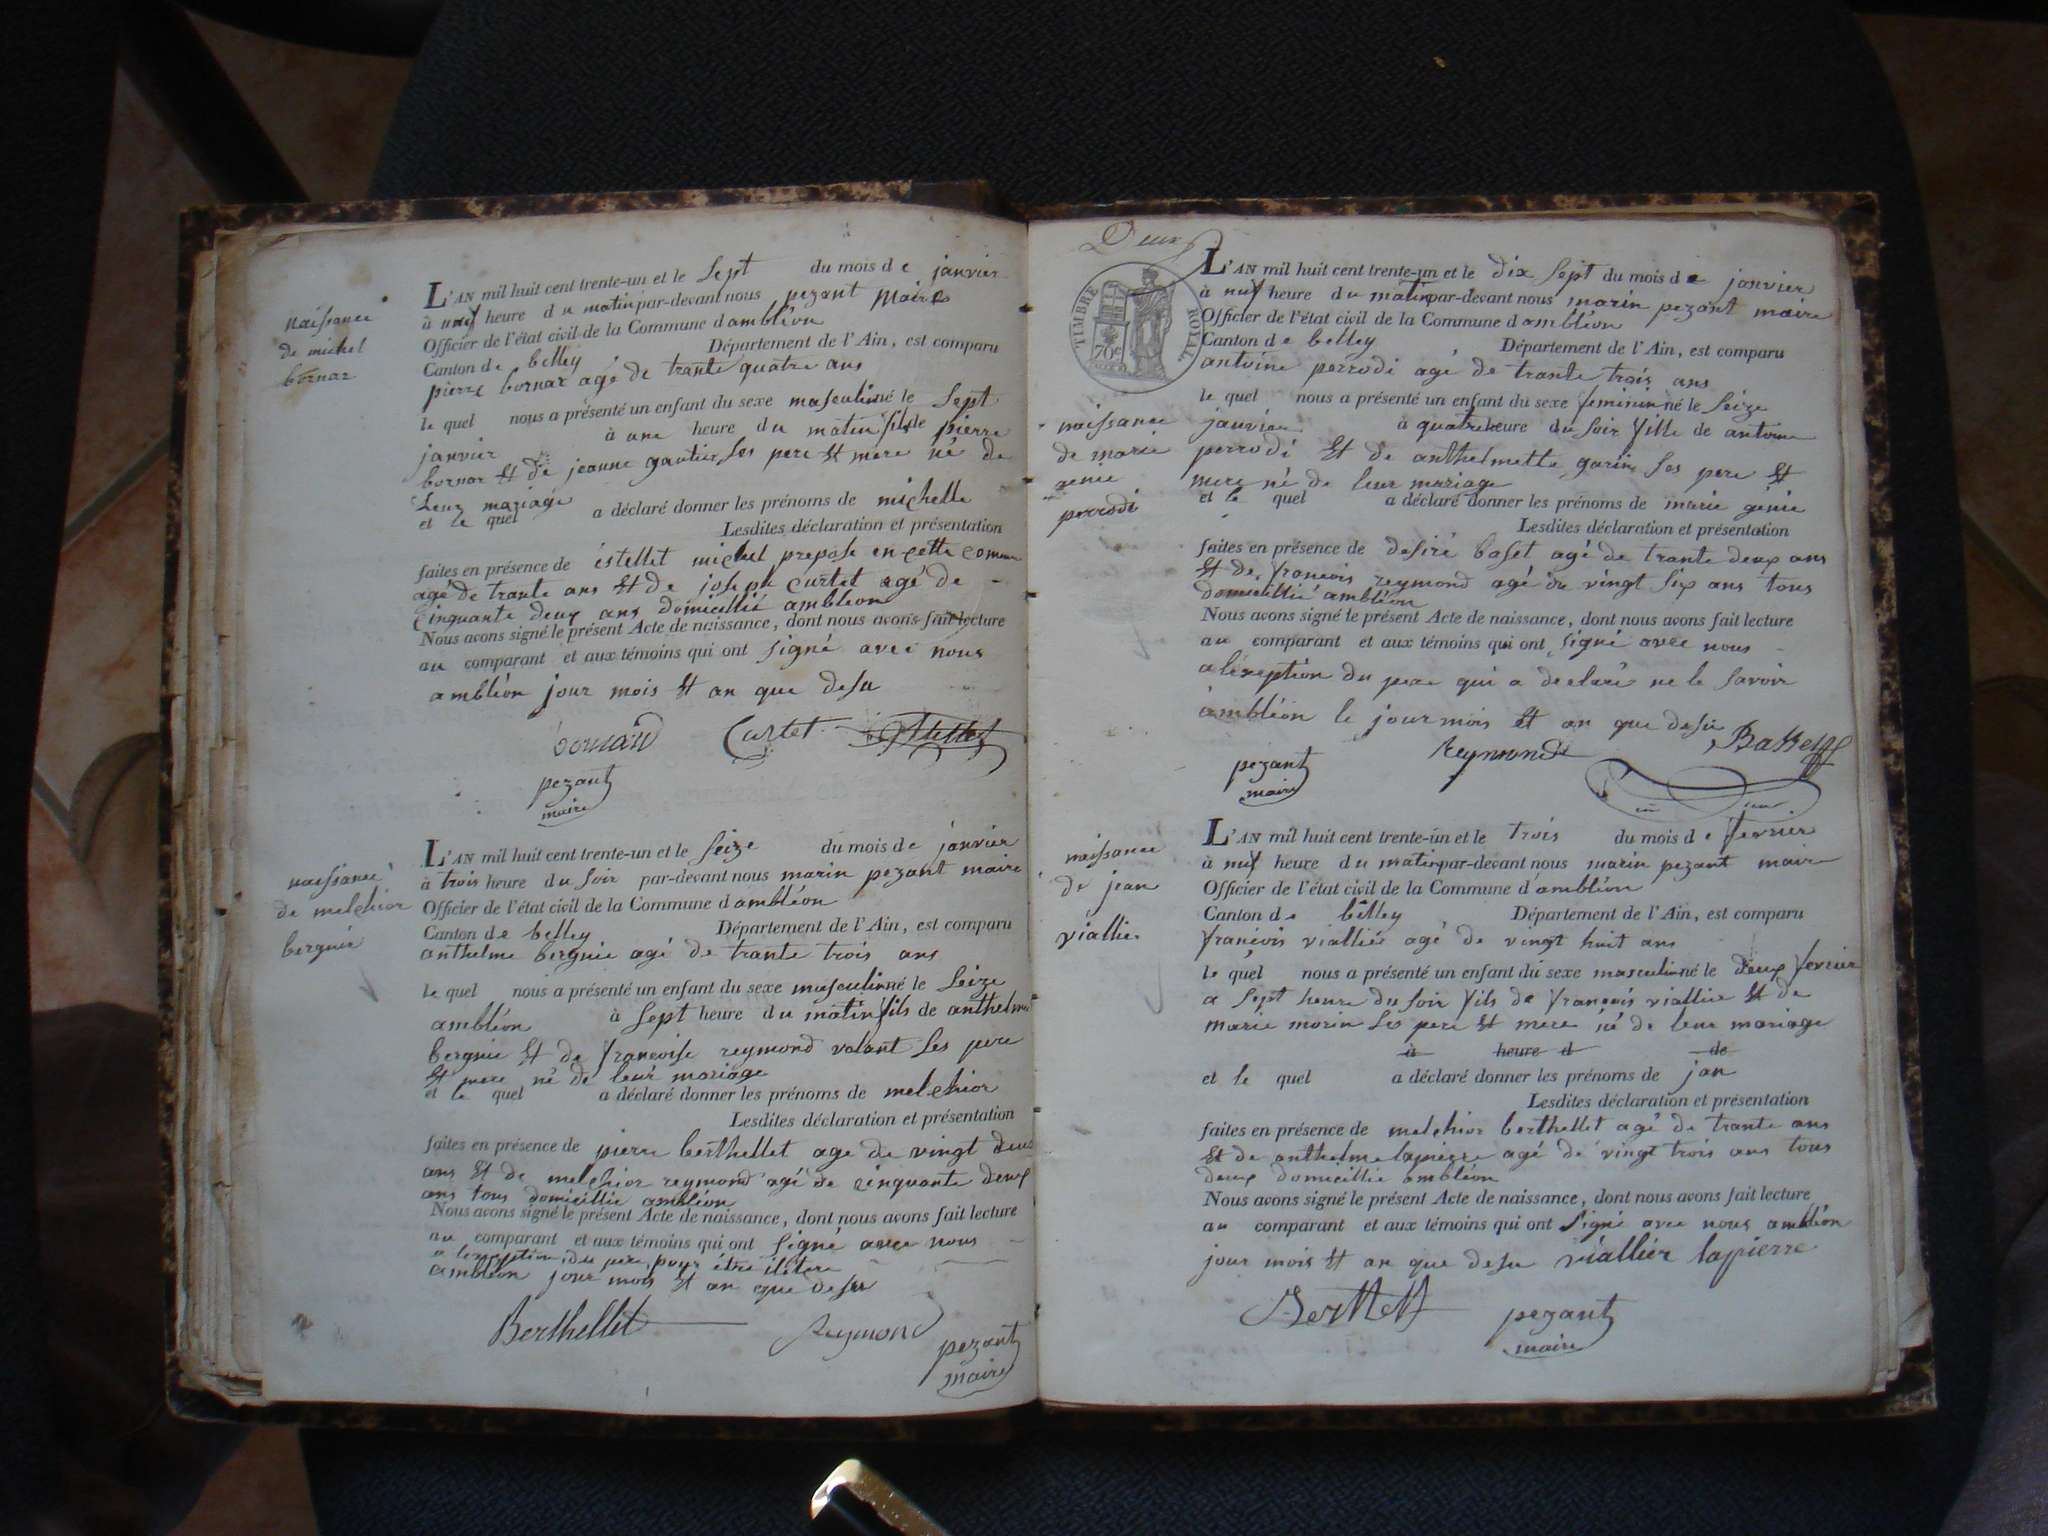 naissance
de michel
bornar
L'AN mil huit cent trente-un et le sept du mois de janvier
à neuf heure du matin par-devant nous pezant maire
Officier de l'état civil de la Commune d'ambléon
Canton de belley Département de l'Ain, est comparu
pierre bornar agé de trante quatre ans
le quel nous a présenté un enfant du sexe masculin né le sept
janvier à une heure du matin fils de pierre
bornar et de jeanne gautier ses pere et mere né de
leur mariage
et le quel a déclaré donner les prénoms de michelle
Lesdites déclaration et présentation
faites en présence de estellet michel preposé en cette comune
agé de trante ans et de joseph curtet agé de
cinquante deux ans domicillié ambléon
Nous avons signé le présent Acte de naissance, dont nous avons fait lecture
au comparant et aux témoins qui ont signé avec nous
ambléon jour mois et an que desu
bornard Curtet Estellet
pezant
maire
naissance
de melchior
bergnié
L'AN mil huit cent trente-un et le seize du mois de janvier
à trois heure du soir par-devant nous marin pezant maire
Officier de l'état civil de la Commune d'ambléon
Canton de belley Département de l'Ain, est comparu
anthelme bergnie agé de trante trois ans
le quel nous a présenté un enfant du sexe masculin né le seize
ambléon à sept heure du matin fils de anthelme
bergnie et de francoise reymond volant ses pere
et mere né de leur mariage
et le quel a déclaré donner les prénoms de melchior
Lesdites déclaration et présentation
faites en présence de pierre berthellet age de vingt deux
ans et de melchior reymond agé de cinquante deux
ans tous domicillie ambléon
Nous avons signé le présent Acte de naissance, dont nous avons fait lecture
au comparant et aux témoins qui ont signé avec nous
a lexeption du pere pour être ilitere
ambléon jour mois et an que desu
Berthellet Reymond pezant
maire
Deux
TIMBRE ROYAL
70c
L'AN mil huit cent trente-un et le dix sept du mois de janvier
à neuf heure du matin par-devant nous marin pezant maire
Officier de l'état civil de la Commune d'ambléon
Canton de belley Département de l'Ain, est comparu
antoine perrodi agé de trante trois ans
le quel nous a présenté un enfant du sexe feminin né le seize
janvier à quatre heure du soir fille de antoine
perrodi et de anthelmette garin ses pere et
mere né de leur mariage
et le quel a déclaré donner les prénoms de marie génie
Lesdites déclaration et présentation
naissance
de marie
génie
perrodi
faites en présence de desiré baset agé de trante deux ans
et de francois reymond agé de vingt six ans tous
domicillié ambléon
Nous avons signé le présent Acte de naissance, dont nous avons fait lecture
au comparant et aux témoins qui ont signé avec nous
a lexeption du pere qui a declaré ne le savoir
ambléon le jour mois et an que desu
Bassel
pezant reymond
maire
naissance
de jean
viallier
L'AN mil huit cent trente-un et le trois du mois de fevrier
à neuf heure du matin par-devant nous marin pezant maire
Officier de l'état civil de la Commune d'ambléon
Canton de belley Département de l'Ain, est comparu
françois viallier agé de vingt huit ans
le quel nous a présenté un enfant du sexe masculin né le deux fevrier
a sept heure du soir fils de françois viallier et de
marie morin ses pere et mere né de leur mariage
à heure d de
et le quel a déclaré donner les prénoms de jan
Lesdites déclaration et présentation
faites en présence de melchior berthellet agé de trante ans
et de anthelme lapierre agé de vingt trois ans tous
deux domicillie ambléon
Nous avons signé le présent Acte de naissance, dont nous avons fait lecture
au comparant et aux témoins qui ont signé avec nous ambléon
jour mois et an que desu viallier lapierre
Berthet pezant
maire